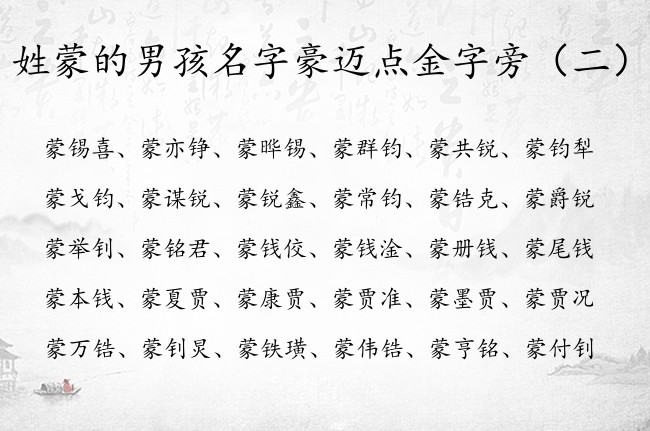 姓蒙的男孩名字豪迈点金字旁（二）
蒙锡喜、蒙亦铮、蒙晔锡、蒙群钧、蒙共锐、蒙钧犁
蒙戈钧、蒙谋锐、蒙锐鑫、蒙常钧、蒙锆克、蒙爵锐
蒙举钊、蒙铭君、蒙钱佼、蒙钱淦、蒙册钱、蒙尾钱
蒙本钱、蒙夏贾、蒙康贾、蒙贾准、蒙墨贾、蒙贾况
蒙万锆、蒙钊炅、蒙铁璜、蒙伟锆、蒙亨铭、蒙付钊